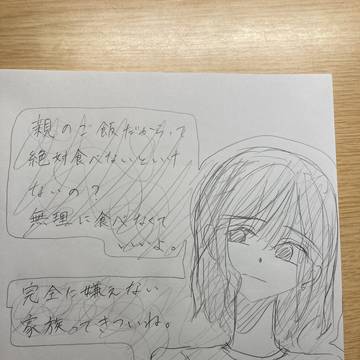 親のご飯だからって
絶対食べないといけ
ないの？
無理に食べなくて
いいよ。
完全に嫌えない
家族ってきついね。